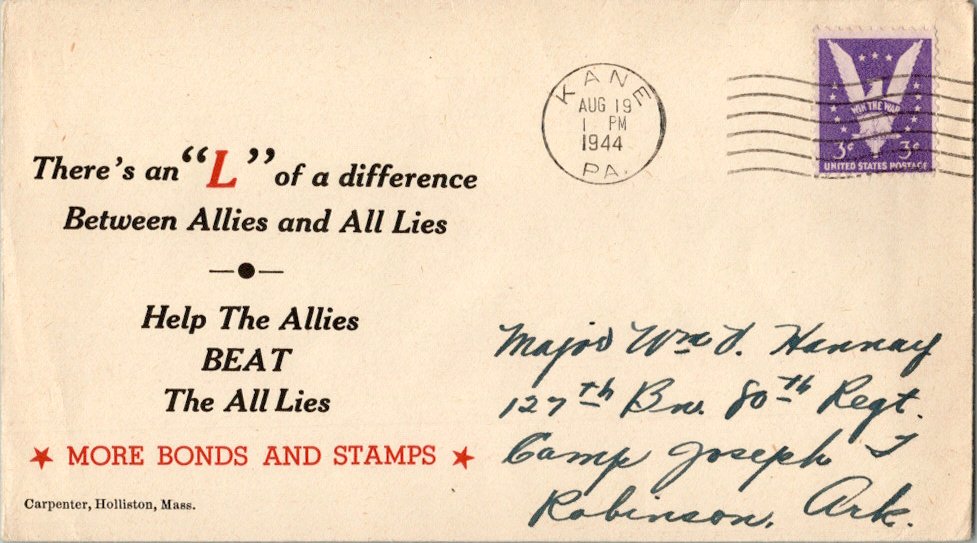 There's an "L" of a difference
Between Allies and All Lies
Help The Allies
BEAT
The All Lies
★ MORE BONDS AND STAMPS ★
Carpenter, Holliston, Mass.
KANE
AUG 19
1 PM
1944
PA.
WIN THE WAR
3¢ 3¢
UNITED STATES POSTAGE
Major Wm J. Hannay
127th Bn. 80th Regt.
Camp Joseph T
Robinson, Ark.